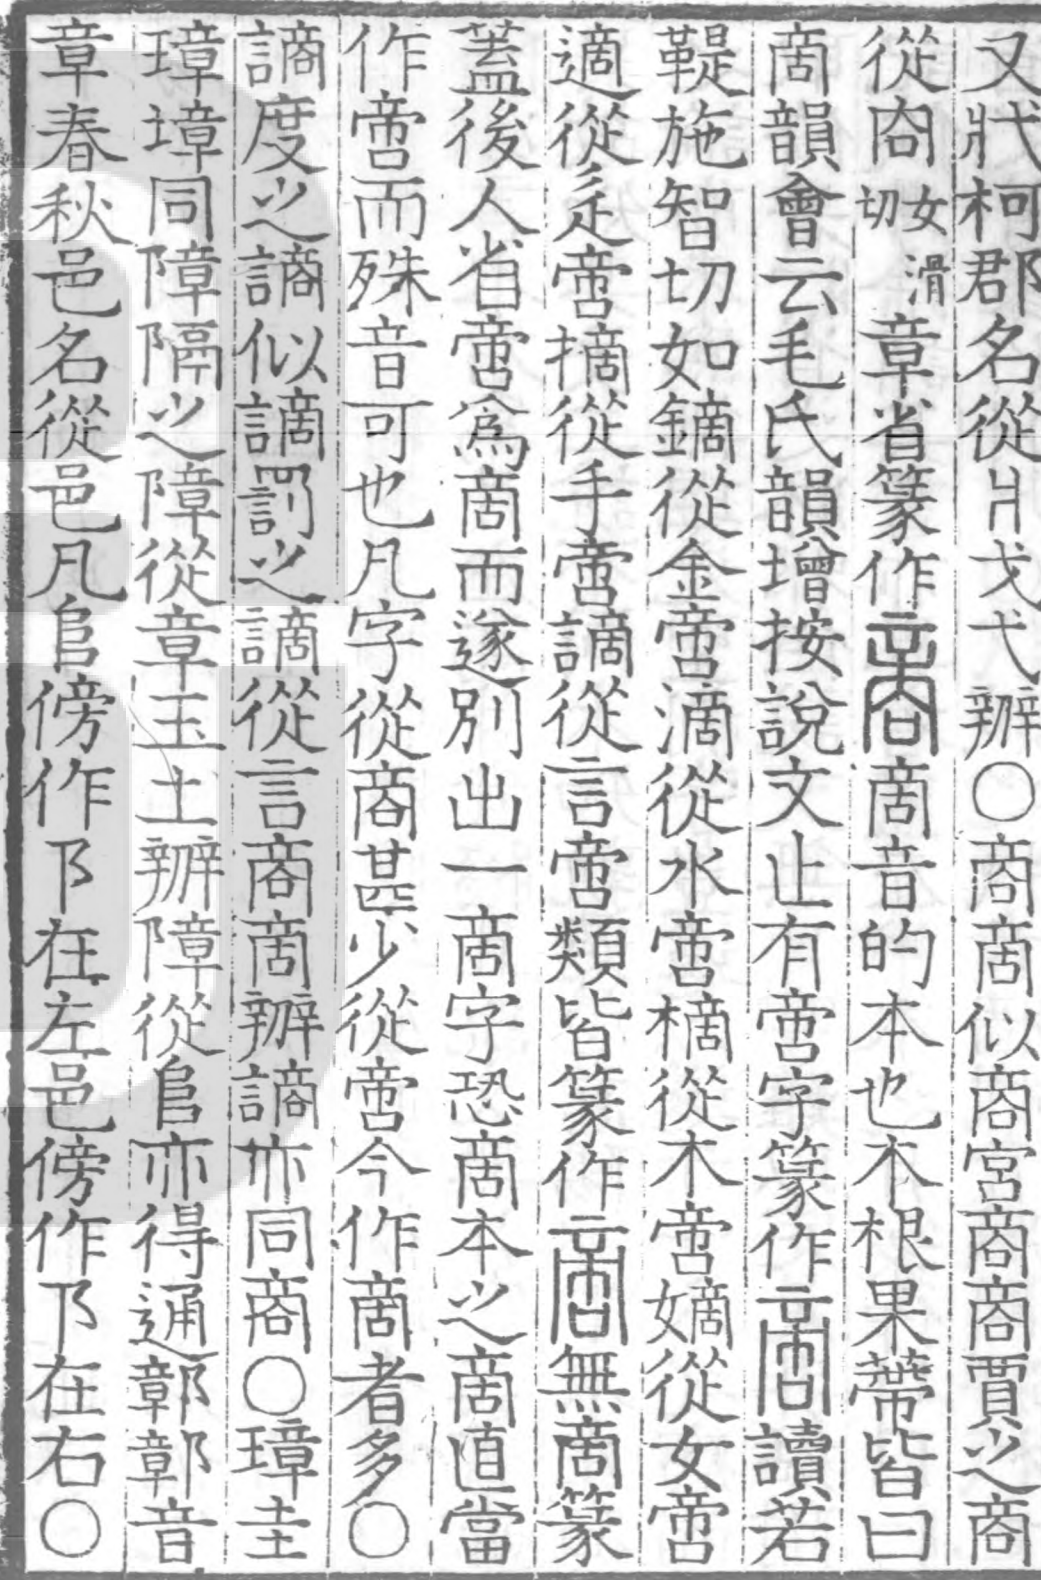 又牂柯郡名從爿戈弋辦〇商啇似商宮商商賈之商
從㕯女滑切章省篆作商啇音的本也木根果蔕皆曰
啇韻會云毛氏韻增按說文止有啻字篆作啻讀若
鞮施智切如鏑從金啻滴從水啻樀從木啻嫡從女啻
適從辵啻摘從手啻謫從言啻類皆篆作啻無啇篆
蓋後人省啻爲啇而遂別出一啇字恐啇本之啇直當
作啻而殊音可也凡字從商甚少從啻今作啇者多〇
謪度之謪似謫罰之謫從言商啇辦謪亦同商〇璋圭
璋墇同障隔之障從章玉土辦障從𨸏亦得通鄣鄣音
章春秋邑名從邑凡𨸏傍作阝在左邑傍作阝在右〇